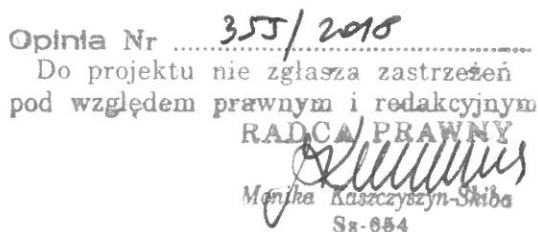 Opinia Nr 355/2018
Do projektu nie zgłasza zastrzeżeń
pod względem prawnym i redakcyjnym
RADCA PRAWNY
Monika Kaszczyszyn-Skiba
Sz-654